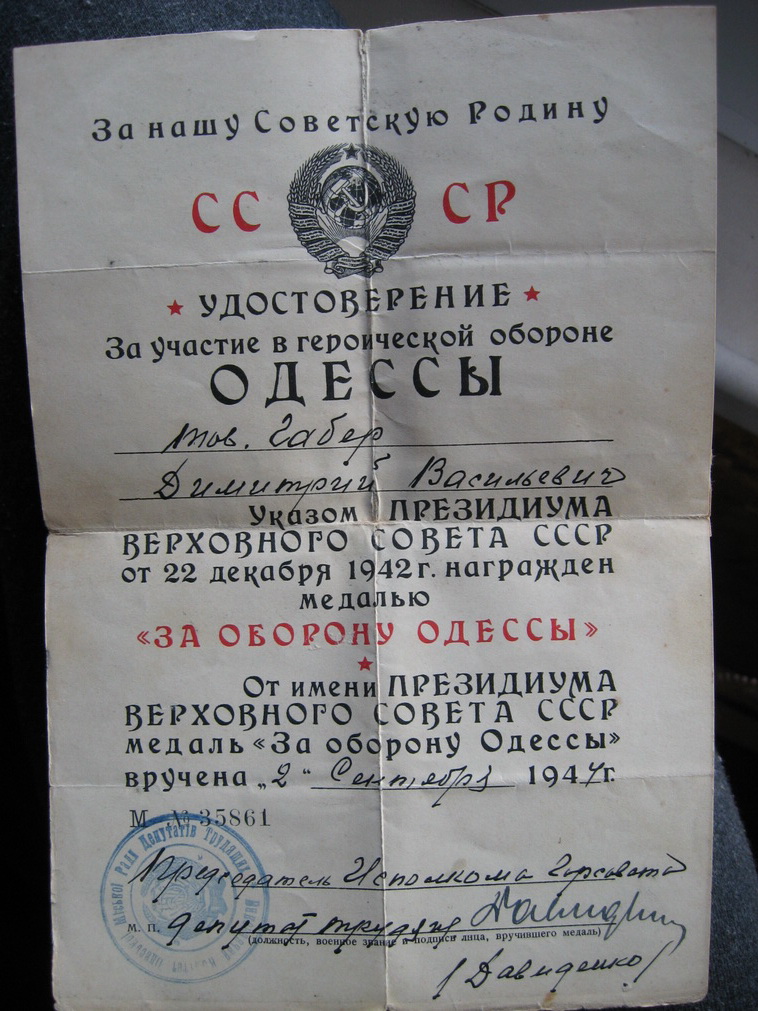 За нашу Советскую Родину
СССР
УДОСТОВЕРЕНИЕ
За участие в героической обороне
ОДЕССЫ
тов. Габер
Димитрий Васильевич
Указом ПРЕЗИДИУМА
ВЕРХОВНОГО СОВЕТА СССР
от 22 декабря 1942 г. награжден
медалью
«ЗА ОБОРОНУ ОДЕССЫ»
От имени ПРЕЗИДИУМА
ВЕРХОВНОГО СОВЕТА СССР
медаль «За оборону Одессы»
вручена „2" Сентября 1947г.
М № 35861
Міської Ради Депутатів Трудящих
Председатель Исполкома Горсовета
М. П. депутатов
(должность, военное звание и подписи лица, вручившего медаль)
/Давиденко/